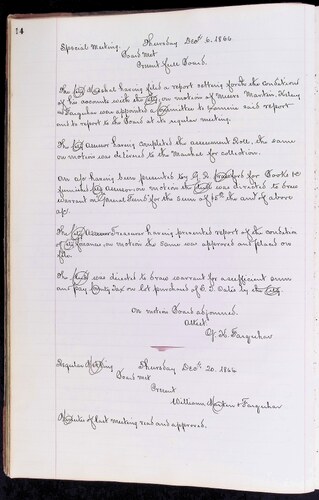 14
Special Meeting. Thursday Decr 6. 1866.
Board met
Present full Board.
The City Marshal having filed a report setting forth the condition
of his accounts with the City, on motion of Messrs
& Farquhar was appointed a Committee to examine said report
and to report to the Board at its regular meeting.
The City Assessor having completed the assessment Roll, the same
on motion was delivered to the Marshal for collection.
An a/c having been presented by G. H. Crawford for Books &c
furnished City Assessor, on motion the Clerk was directed to draw
warrant on General Fund for the sum of the amt of above
a/c.
The City Treasurer having presented report of the condition
of City finances, on motion the same was approved and placed on
file.
The Clerk was directed to draw warrant for a sufficient sum
and pay County Tax on lot purchased of by the City.
On motion Board adjourned.
Attest
Farquhar
Regular Meeting Thursday Decr 20. 1866
Board met
Present
Williams & Farquhar
Minutes of last meeting read and approved.